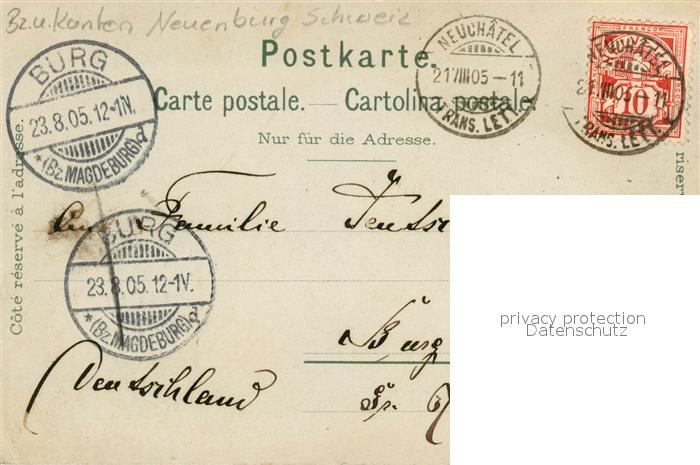 Bz.u.Kanton Neuenburg Schweiz
Postkarte.
Carte postale. — Cartolina postale.
Nur für die Adresse.
BURG
23.8.05.12-1N.
*(Bz.MAGDEBURG)d
NEUCHÂTEL
21 VIII 05 – 11
TRANS. LETT.
NEUCHÂTEL
21 VIII 05 – 11
TRANS. LETT.
10
Côté réservé à l'adresse.
An Familie
BURG
23.8.05.12-1V.
*(Bz.MAGDEBURG)d
Burg
Deutschland
privacy protection
Datenschutz